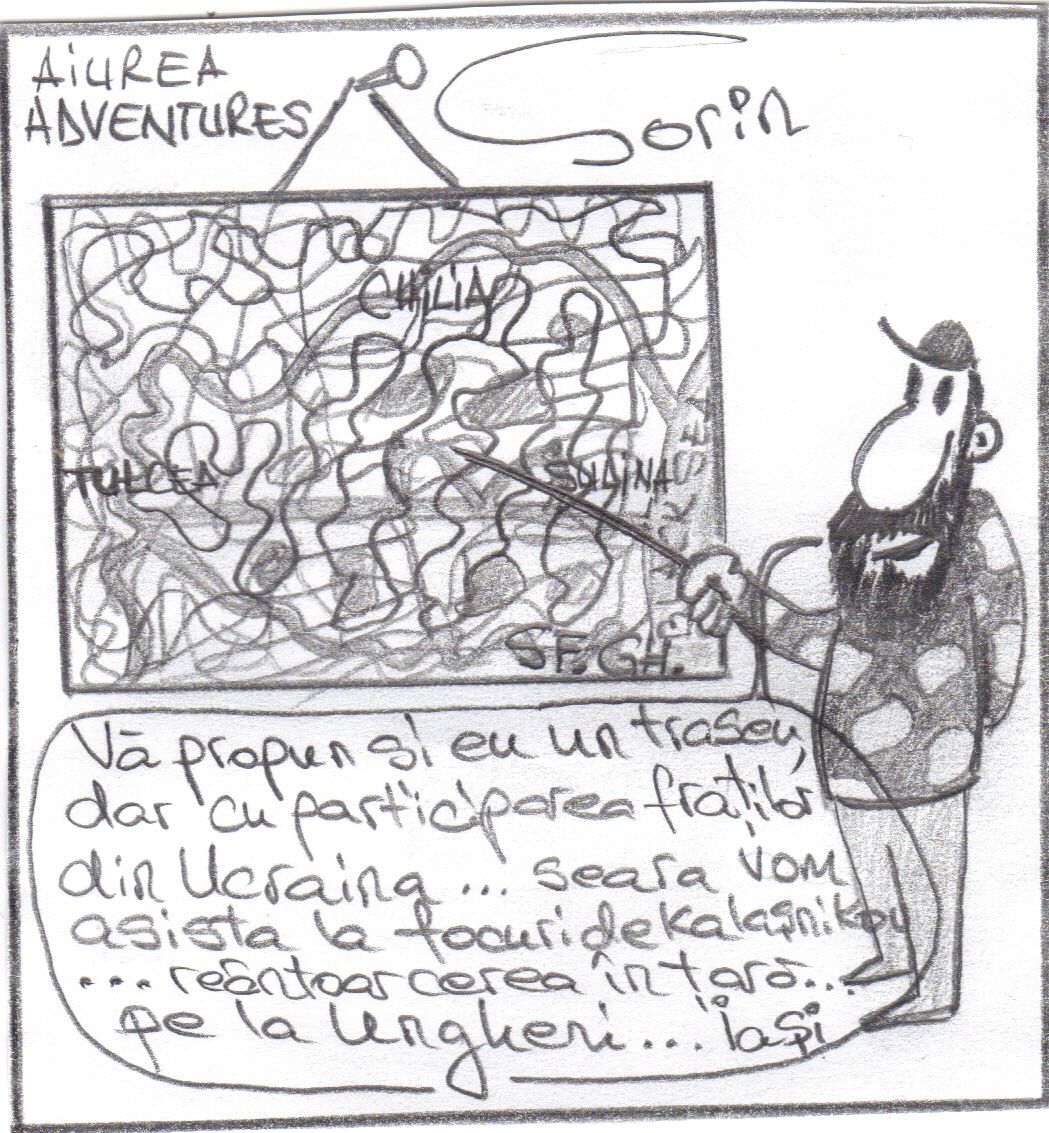 AIUREA
ADVENTURES
Sorin
CHILIA
TULCEA
SULINA
SF. GH.
Vă propun si eu un traseu,
dar cu participarea fraților
din Ucraina ... seara vom
asista la focuri de Kalașnikov
... reântoarcerea în tară...
pe la Ungheni... iași